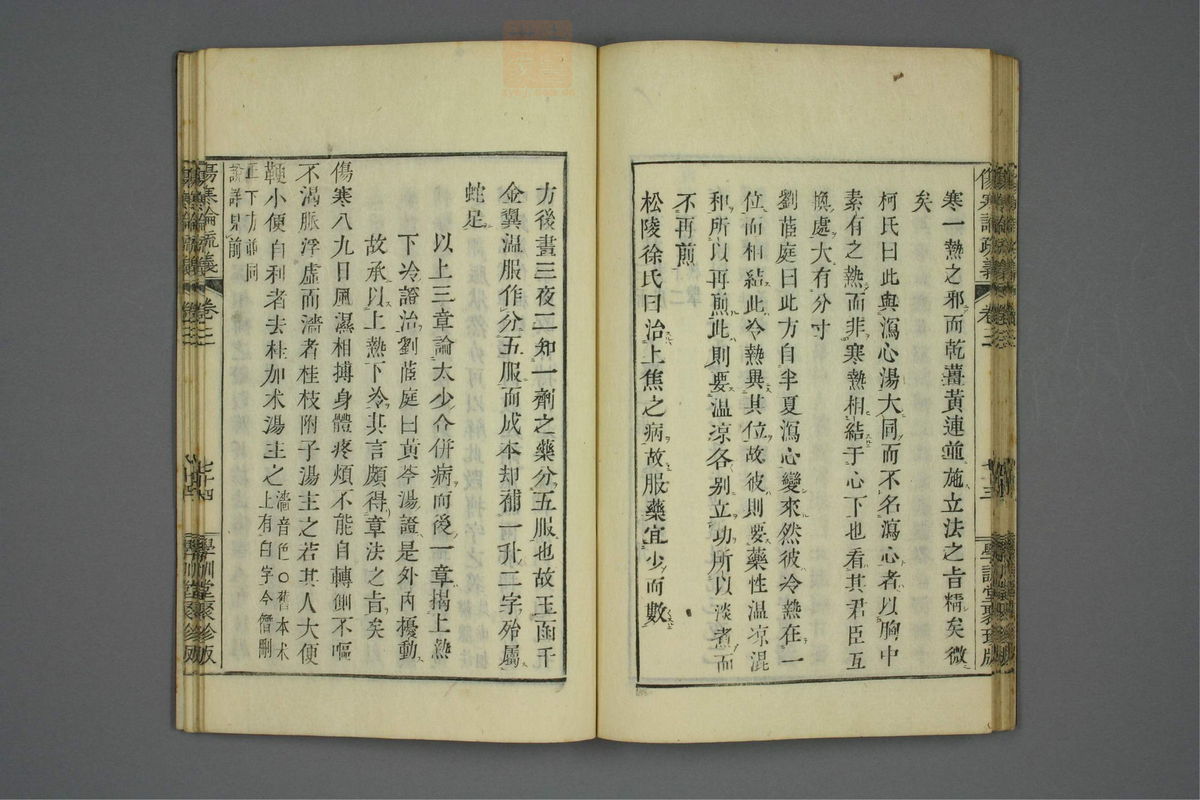 寒一熱之邪而乾薑黃連並施立法之旨精矣微
矣
柯氏曰此與瀉心湯大同而不名瀉心者以胸中
素有之熱而非寒熱相結于心下也看其君臣互
換處大有分寸
劉茝庭曰此方自半夏瀉心變來然彼冷熱在一
位而相結此冷熱異其位故彼則要藥性溫凉混
和所以再煎此則要温凉各别立功所以淡煮而
不再煎
松陵徐氏曰治上焦之病故服藥宜少而數
方後晝三夜二知一劑之藥分五服也故玉函千
金翼温服作分五服而成本却補一升二字殆屬
蛇足
以上三章論太少合併病而後一章揭上熱
下冷證治劉茝庭曰黃芩湯證是外内擾動
故承以上熱下冷其言頗得章法之旨矣
傷寒八九日風濕相搏身體疼煩不能自轉側不嘔
不渴脈浮虛而濇者桂枝附子湯主之若其人大便
鞕小便自利者去桂加朮湯主之濇音色○舊本朮
上有白字今僭刪
正下方並同
說詳見前
傷寒論疏義
卷三
七十四
學訓堂聚珍版